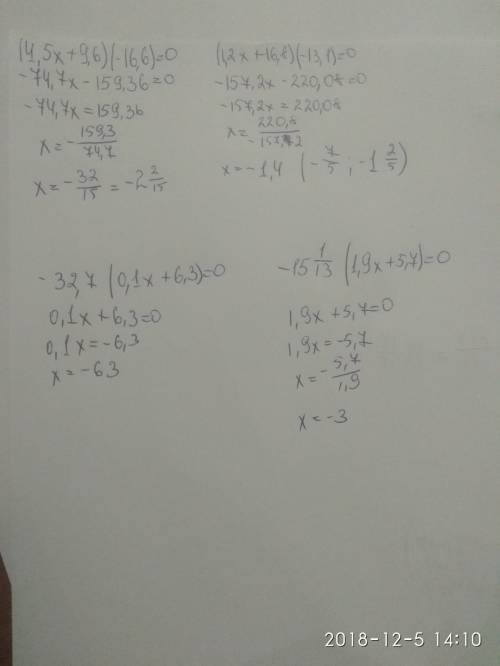 (4,5x+9,6)(-16,6)=0
-74,7x-159,36=0
-74,7x=159,36
x=-159,3/74,7
x=-32/15=-2 2/15
(1,2x+16,8)(-13,1)=0
-157,2x-220,08=0
-157,2x=220,08
x=
x=-1,4 (-7/5; -1 2/5)
-32,7(0,1x+6,3)=0
0,1x+6,3=0
0,1x=-6,3
x=-63
-15 1/13(1,9x+5,7)=0
1,9x+5,7=0
1,9x=-5,7
x=-5,7/1,9
x=-3
2018-12-5 14:10